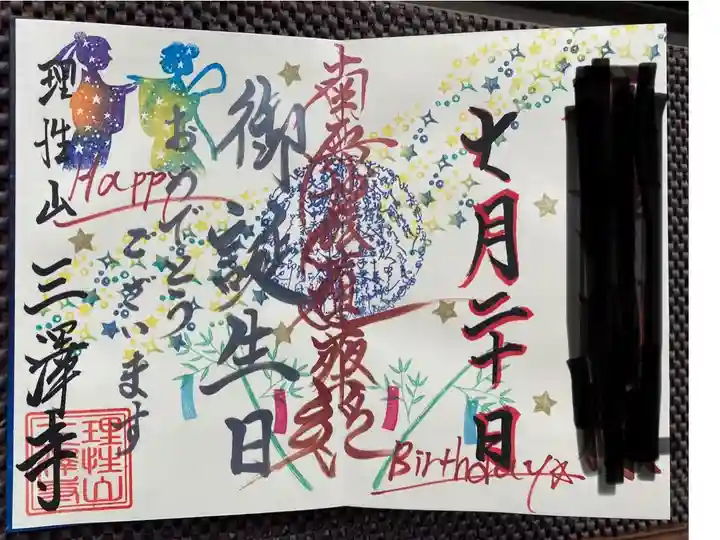 七月二十日
南無妙法蓮華経
御誕生日
おめでとう
ございます
Happy
Birthday☆
理性山 三澤寺
理性山
三澤寺